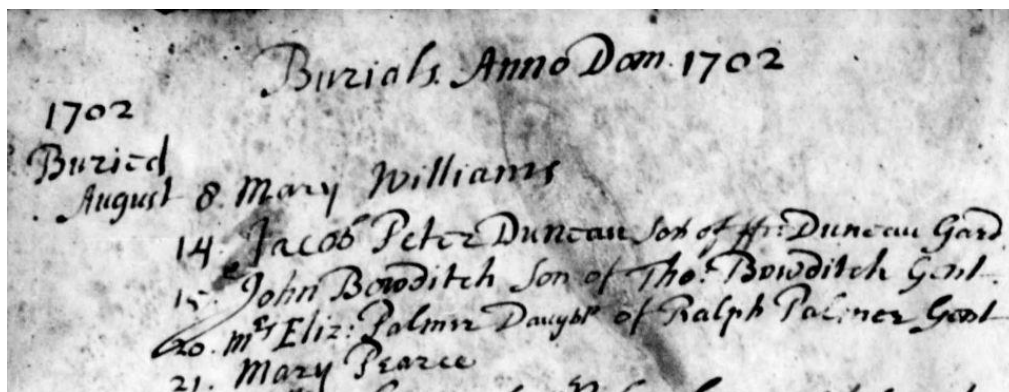 Burials Anno Dom. 1702
1702
Buried
August 8. Mary Williams
14. Jacob Peter Duncan Son of ffr: Duncan Gard
15. John Bowditch Son of Tho: Bowditch Gent.
20. mrs Eliz: Palmer Daughtr of Ralph Palmer Gent
21. Mary Pearce